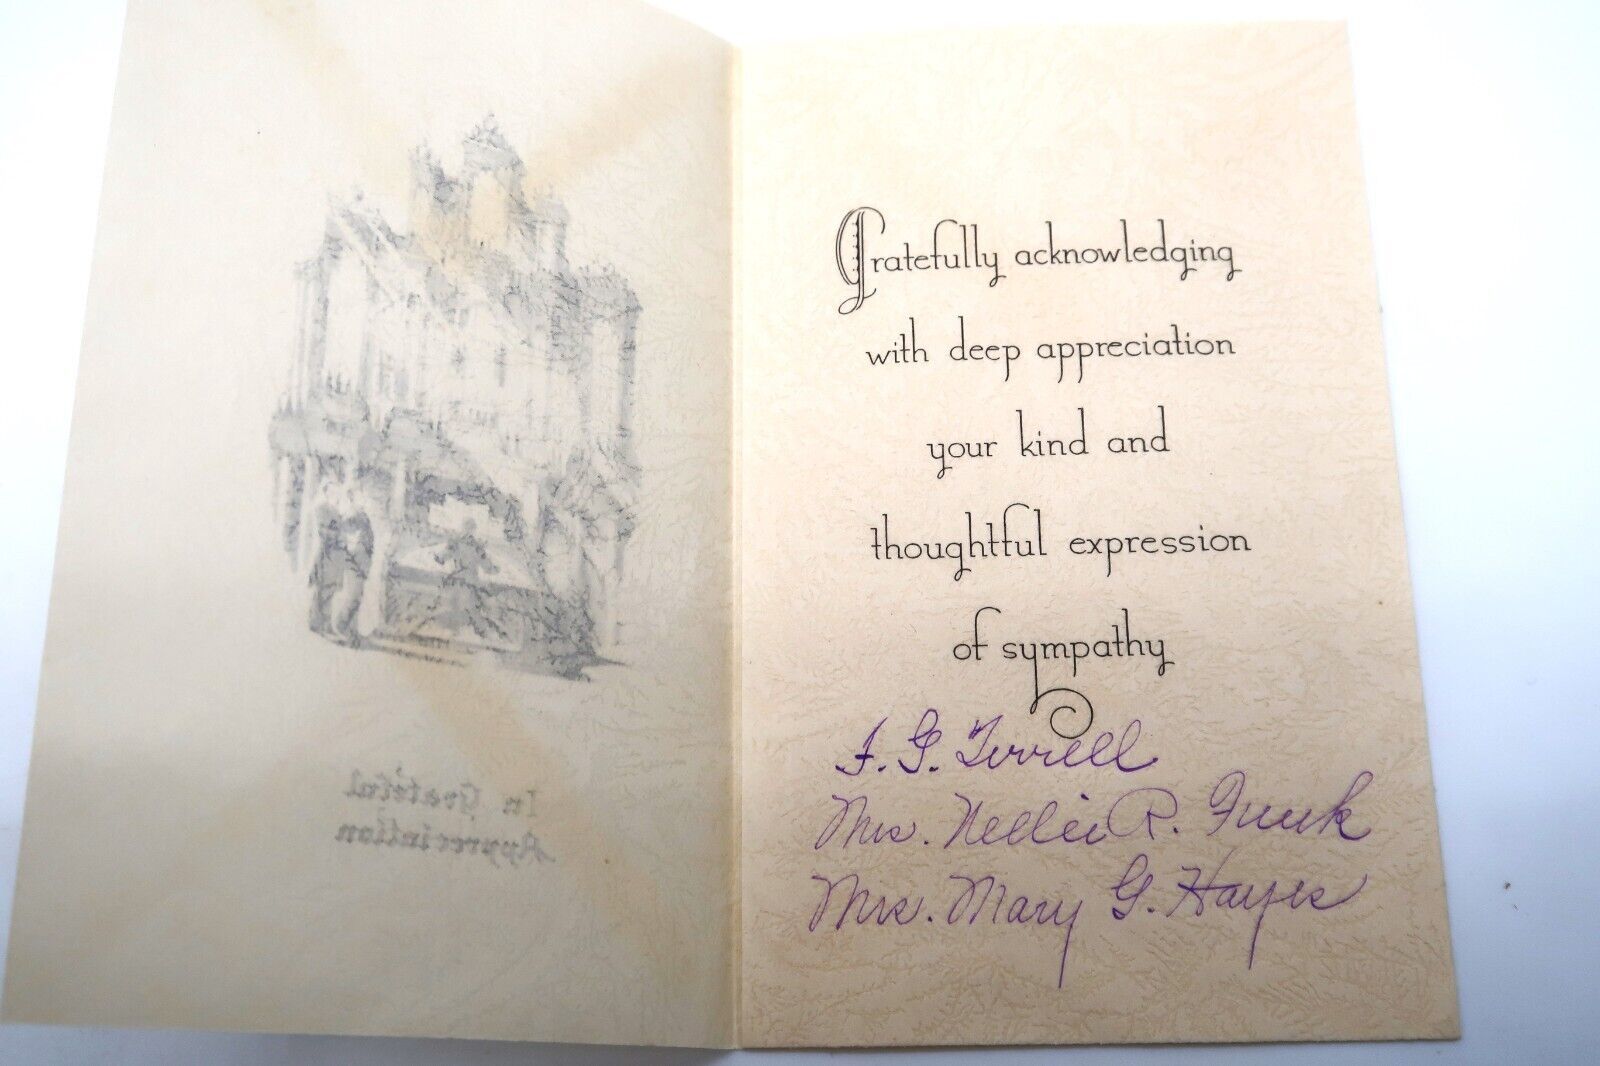 In Grateful
Appreciation
Gratefully acknowledging
with deep appreciation
your kind and
thoughtful expression
of sympathy
F. G. Terrell
Mrs. Nellie R. Funk
Mrs. Mary G. Hayes